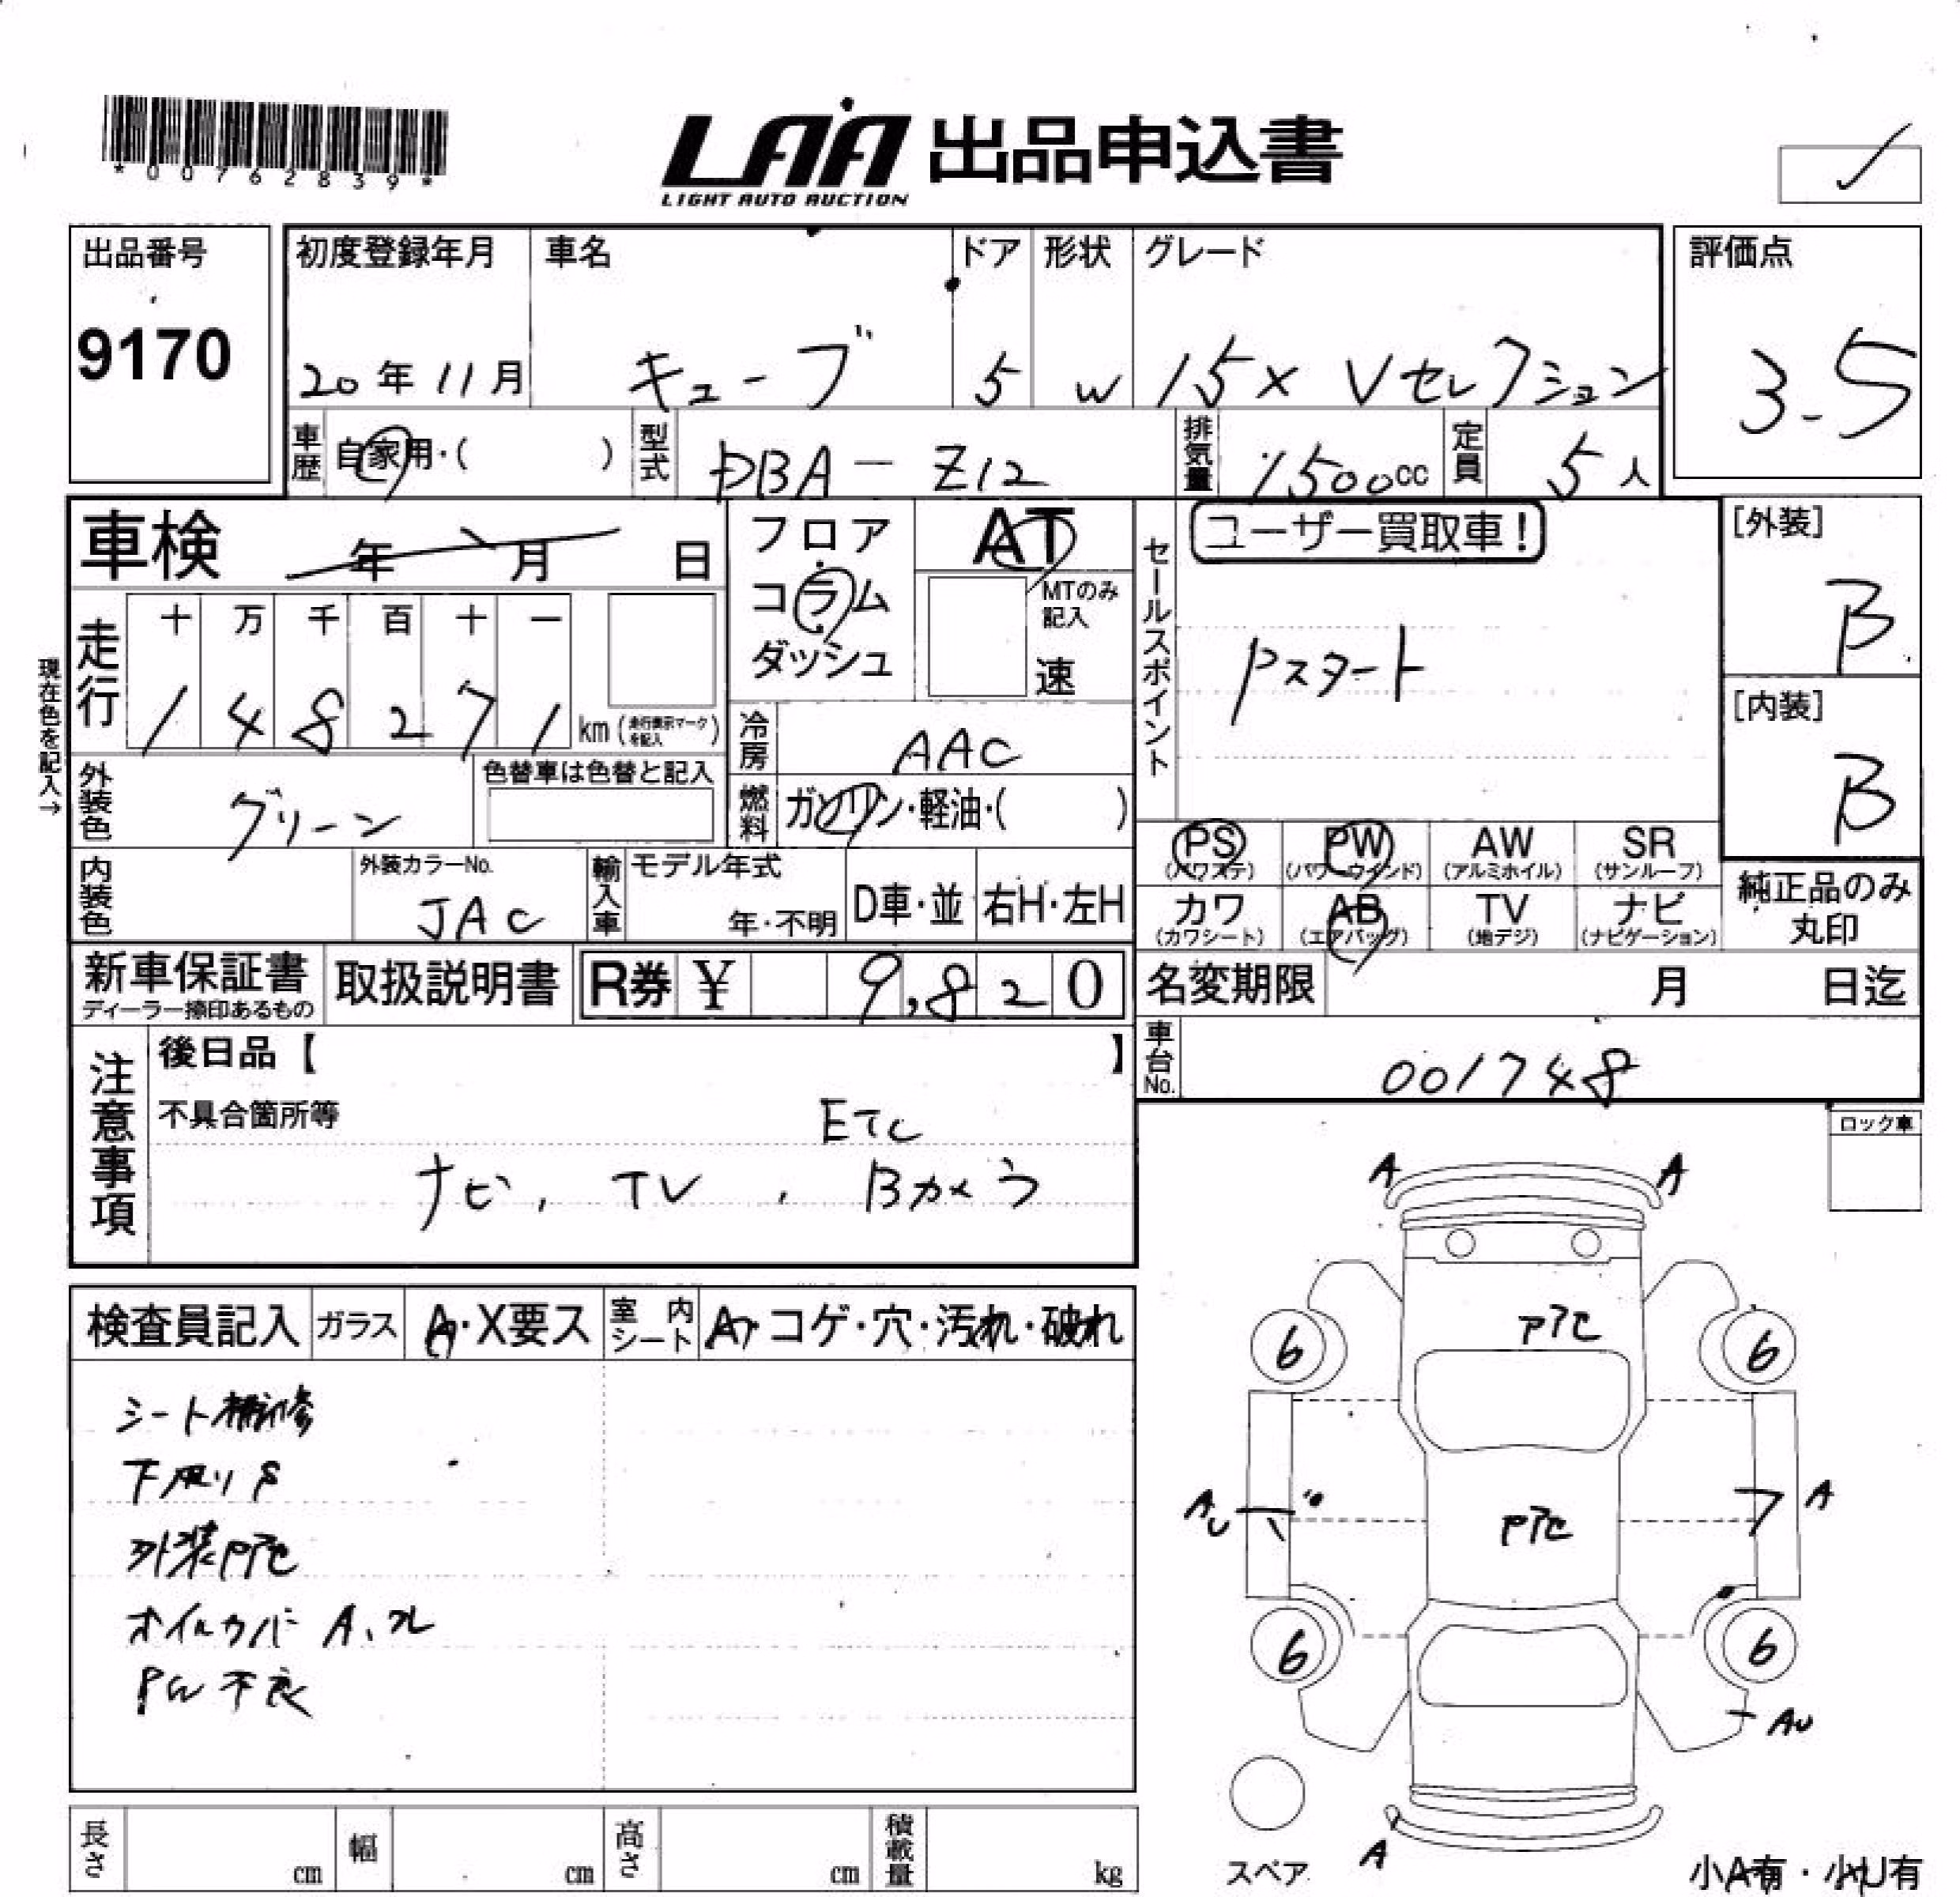 *00762839*
LAA 出品申込書
LIGHT AUTO AUCTION
出品番号 初度登録年月 車名 ドア 形状 グレード 評価点
9170 20年11月 キューブ 5 W 15X Vセレクション 3.5
車歴 自家用・( ) 型式 DBA-Z12 排気量 1500cc 定員 5人
車検 年 月 日
フロア AT
コラム MTのみ記入
ダッシュ 速
セールスポイント ユーザー買取車!
Pスタート
[外装] B
[内装] B
現在色を記入→
走行 十 万 千 百 十 一
1 4 8 2 7 1 km (走行表示マークを記入)
冷房 AAC
外装色 グリーン 色替車は色替と記入
燃料 ガソリン・軽油・( )
PS (パワステ) PW (パワーウインド) AW (アルミホイル) SR (サンルーフ)
カワ (カワシート) AB (エアバッグ) TV (地デジ) ナビ (ナビゲーション)
純正品のみ丸印
内装色 外装カラーNo. JAC 輸入車 モデル年式 年・不明 D車・並 右H・左H
新車保証書 ディーラー捺印あるもの 取扱説明書 R券 ¥ 9,820
名変期限 月 日迄
車台No. 001748
注意事項 後日品【 】
不具合箇所等 ETC
ナビ, TV, Bカメラ
ロック車
検査員記入 ガラス A・X要ス 室内シート A・コゲ・穴・汚れ・破れ
シート補修
下廻りS
外装Pアセ
オイルカバー A、ズレ
PW不良
A A
Pアセ
6 6
A
Pアセ
6 6
AU
A
スペア
小A有・小U有
長さ cm 幅 cm 高さ cm 積載量 kg